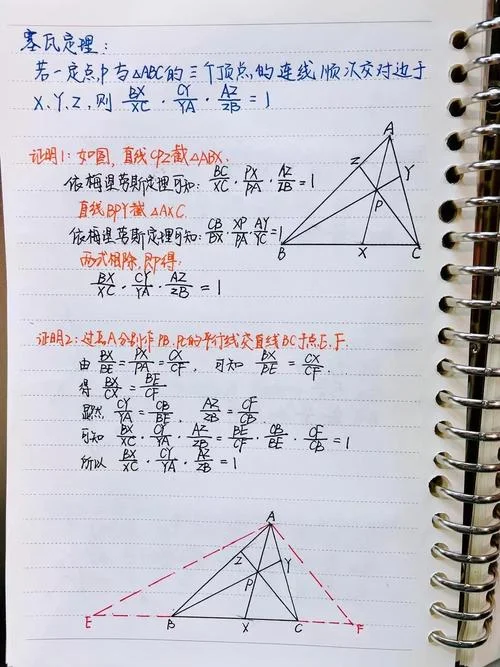 塞瓦定理:
若一定点P与△ABC的三个顶点的连线顺次交对边于
X、Y、Z, 则 BX/XC · CY/YA · AZ/ZB = 1
证明1: 如图, 直线CPZ截△ABX.
依梅涅劳斯定理可知: BC/XC · PX/PA · AZ/ZB = 1
直线BPY截△AXC.
依梅涅劳斯定理可知: CB/BX · XP/PA · AY/YC = 1
两式相除, 即得:
BX/XC · CY/YA · AZ/ZB = 1
A
Z
Y
P
B
X
C
证明2: 过点A分别作PB、PC的平行线交直线BC于点E、F.
由 BX/BE = PX/PA = CX/CF, 可知 BX/BE = CX/CF.
得 BX/CX = BE/CF
显然 CY/YA = CB/BE, AZ/ZB = CF/CB.
可知 BX/XC · CY/YA · AZ/ZB = BE/CF · CB/BE · CF/CB = 1
所以 BX/XC · CY/YA · AZ/ZB = 1
A
Z
Y
P
E
B
X
C
F